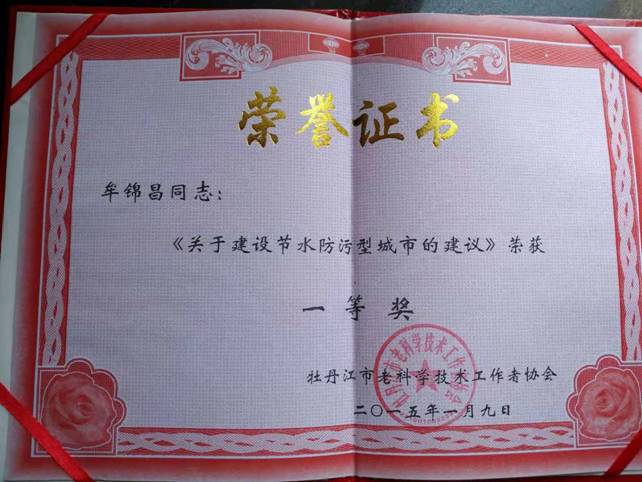 荣誉证书
牟锦昌同志：
《关于建设节水防污型城市的建议》荣获
一等奖
牡丹江市老科学技术工作者协会
二〇一五年一月九日